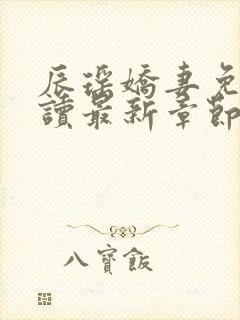 辰瑤嬌妻免
讀最新章節
八寶飯